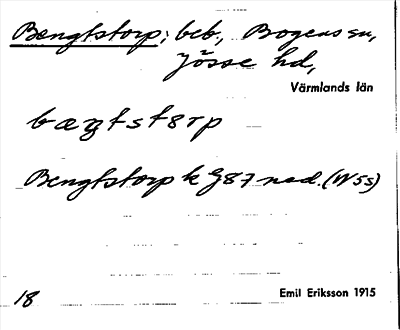 Bengtstorp; beb., Bogens sn,
Jösse hd,
Värmlands län
bæŋtstɵrp
Bengtstorp k G87 nod. (W5s)
18
Emil Eriksson 1915